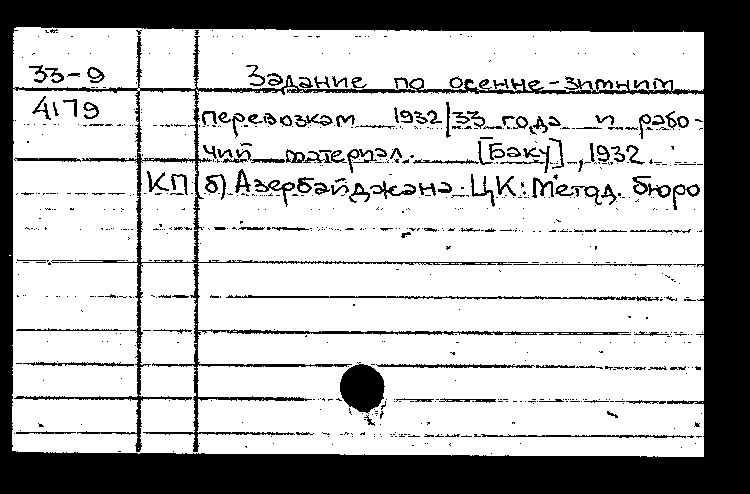 33-9 Задание по осенне-зимним
4179 перевозкам 1932/33 года и рабо-
чий материал. [Баку], 1932.
КП(б) Азербайджана. ЦК: Метод. бюро